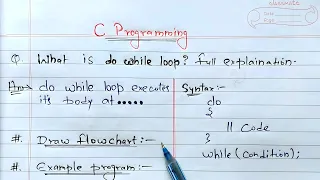 C Programming
Q. What is do while loop? full explaination.
Ans do while loop executes
it's body at.....
Syntax:-
do
{
// Code
}
while (condition);
#. Draw flowchart:-
#. Example program:-